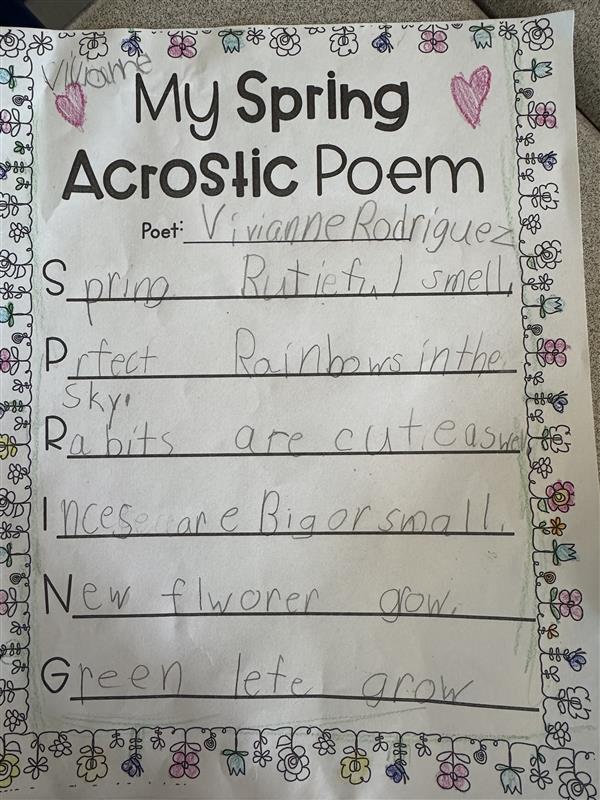 Vivianne
My Spring
Acrostic Poem
Poet: Vivianne Rodriguez
Spring Rutieful smell.
Prfect Rainbows in the
sky.
Rabits are cute as well
Inceses are Big or small.
New flworer grow.
Green lefe grow